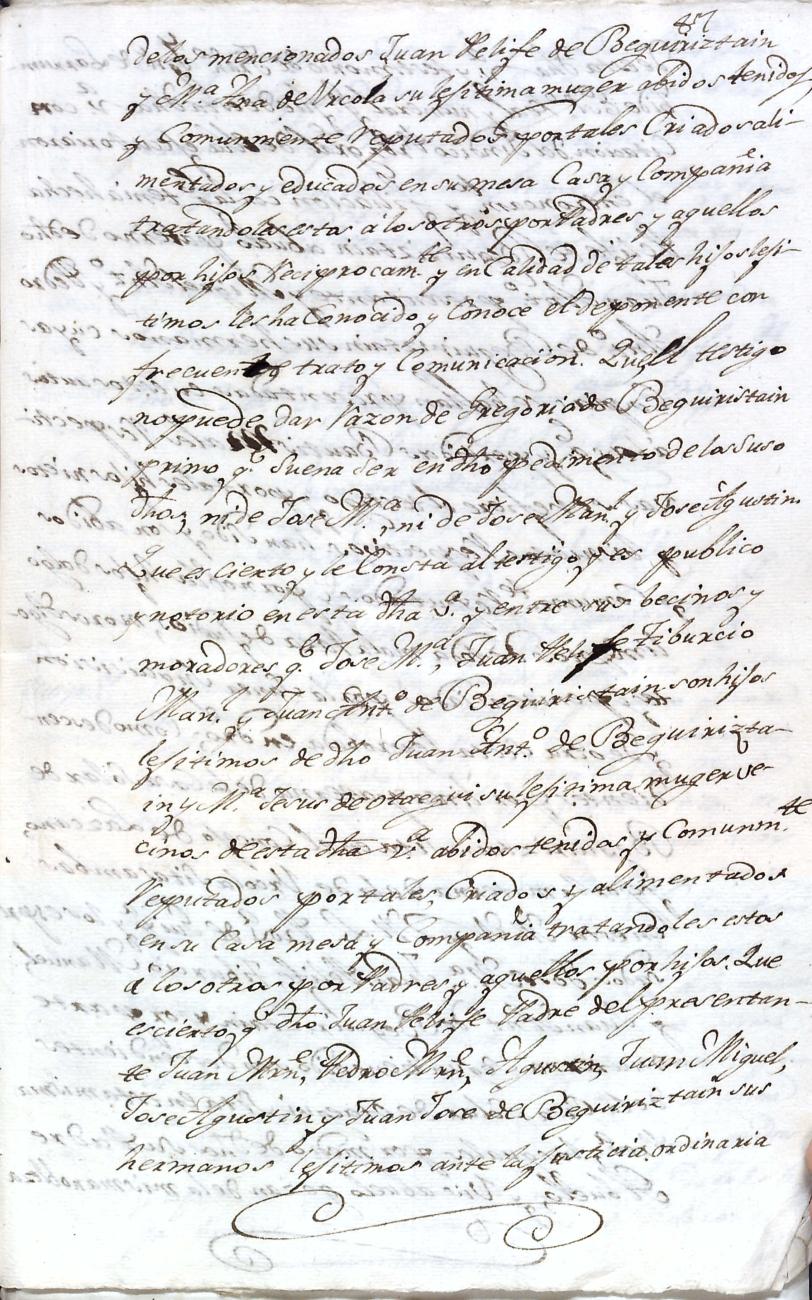 47
delos mencionados Juan Phelife de Beguiriztain
y M.ª Ana de Urcola su lesitima muger abidos tenidos,
y Comunmente Reputados por tales Criados ali-
mentados y educados en su mesa Casa y Compañia
tratandoles estos á los otros por Padres y aquellos
por hijos Reciprocam.te y en Calidad de tales hijos lesi-
timos les ha Conocido y Conoce el deponente con
frecuente trato y Comunicación. Que el testigo
no puede dar Razon de Gregorio de Beguiristain
primo q.e suena ser en dho pedimento de los Suso
dhos, ni de Jose M.ª, ni de Jose Man.l y Jose Agustin.
Que es cierto y le Consta al testigo y es publico
y notorio en esta dha v.ª y entre sus becinos y
moradores q.e Jose M.ª, Juan Phelife Tiburcio
Man.l y Juan Ant.o de Beguiristain son hijos
lesitimos de dho Juan Ant.o de Beguirizta-
in y M.ª Jesus de Otaegui su lesitima muger ve-
cinos de esta dha v.ª abidos tenidos y Comunm.te
Reputados por tales, Criados y alimentados
en su Casa mesa y Compañia tratandoles estos
á los otros por Padres y aquellos por hijos. Que
es cierto q.e dho Juan Phelife Padre del presentan-
te Juan Mrn, Pedro Mrn, Agustin, Juan Miguel,
Jose Agustin y Juan Jose de Beguiriztain sus
hermanos lesitimos ante la Justicia ordinaria